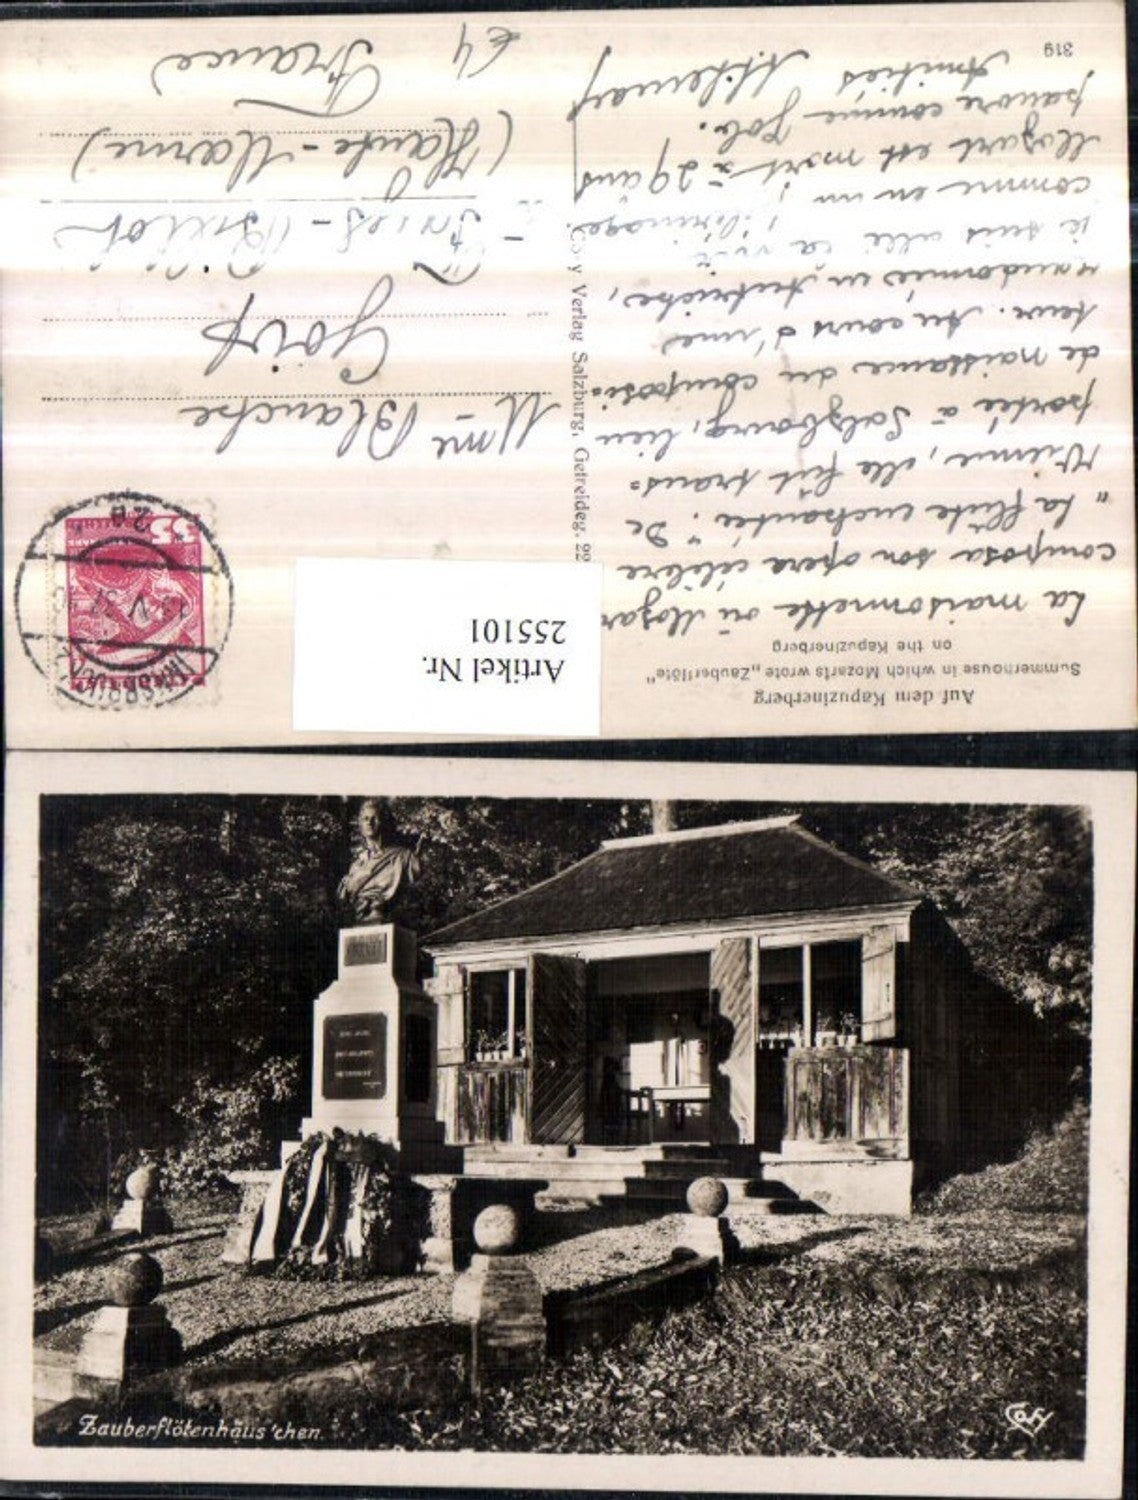 Auf dem Kapuzinerberg
Summerhouse in which Mozarts wrote „Zauberflöte“
on the Kapuzinerberg
La maisonnette où Mozart
composa son opera célèbre
" La flûte enchantée". De
Vienne, elle fut trans=
portée à Salzbourg, lieu
de naissance du composi=
teur. Au cours d'une
randonnée en Autriche,
je suis allé la voir
comme en un pélerinage.
Mozart est mort à 29 ans
pauvre comme Job.
Amitiés
319
Cosy Verlag Salzburg, Getreideg. 22
Artikel Nr.
255101
35
INNSBRUCK 2
V 37
* 2a *
Mme Blanche
à Fayes-Billot
(Haute-Marne)
France
€4
Zauberflötenhäus'chen
Cosy